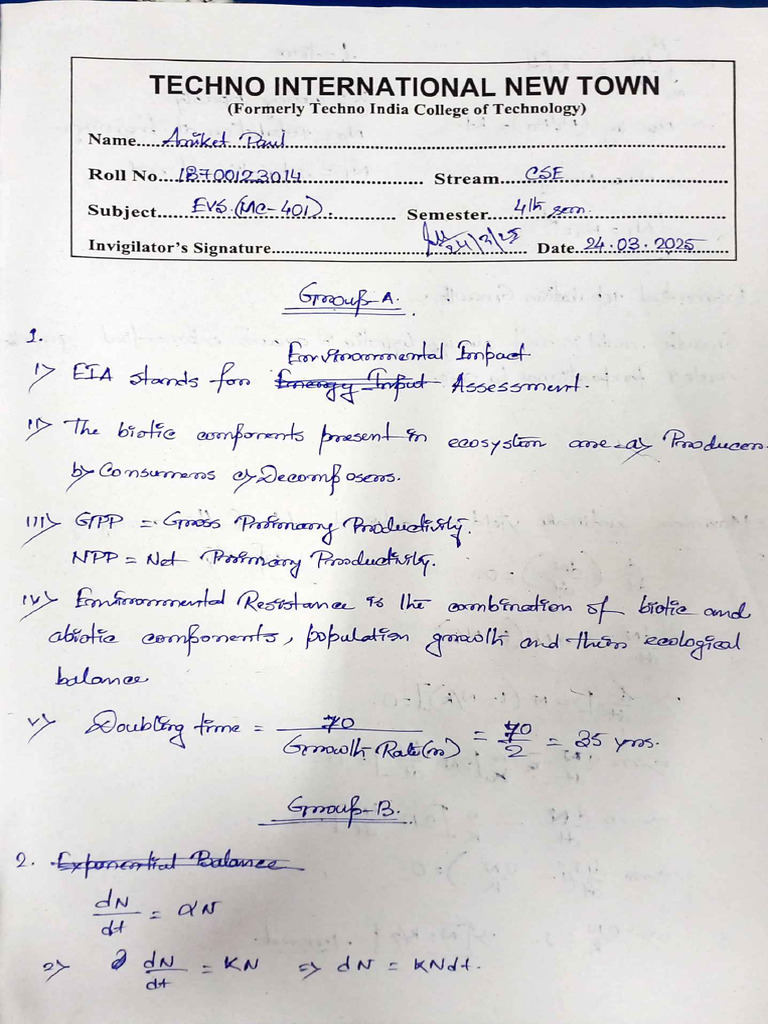 TECHNO INTERNATIONAL NEW TOWN
(Formerly Techno India College of Technology)
Name....Aniket Paul
Roll No...18700123014 Stream....CSE
Subject....EVS (MC-401). Semester....4th sem.
Invigilator's Signature.... 24/3/25 Date..24.03.2025
Group-A.
1.
Environmental Impact
i) EIA stands for Energy Input Assessment.
ii) The biotic components present in ecosystem are - a) Producers
b) Consumers c) Decomposers.
iii) GPP = Gross Primary Productivity.
NPP = Net Primary Productivity.
iv) Environmental Resistance is the combination of biotic and
abiotic components, population growth and their ecological
balance
v) Doubling time = 70 / Growth Rate(r) = 70/2 = 35 yrs.
Group-B.
2. Exponential Balance
dN/dt = αN
=> dN/dt = KN => dN = KNdt.